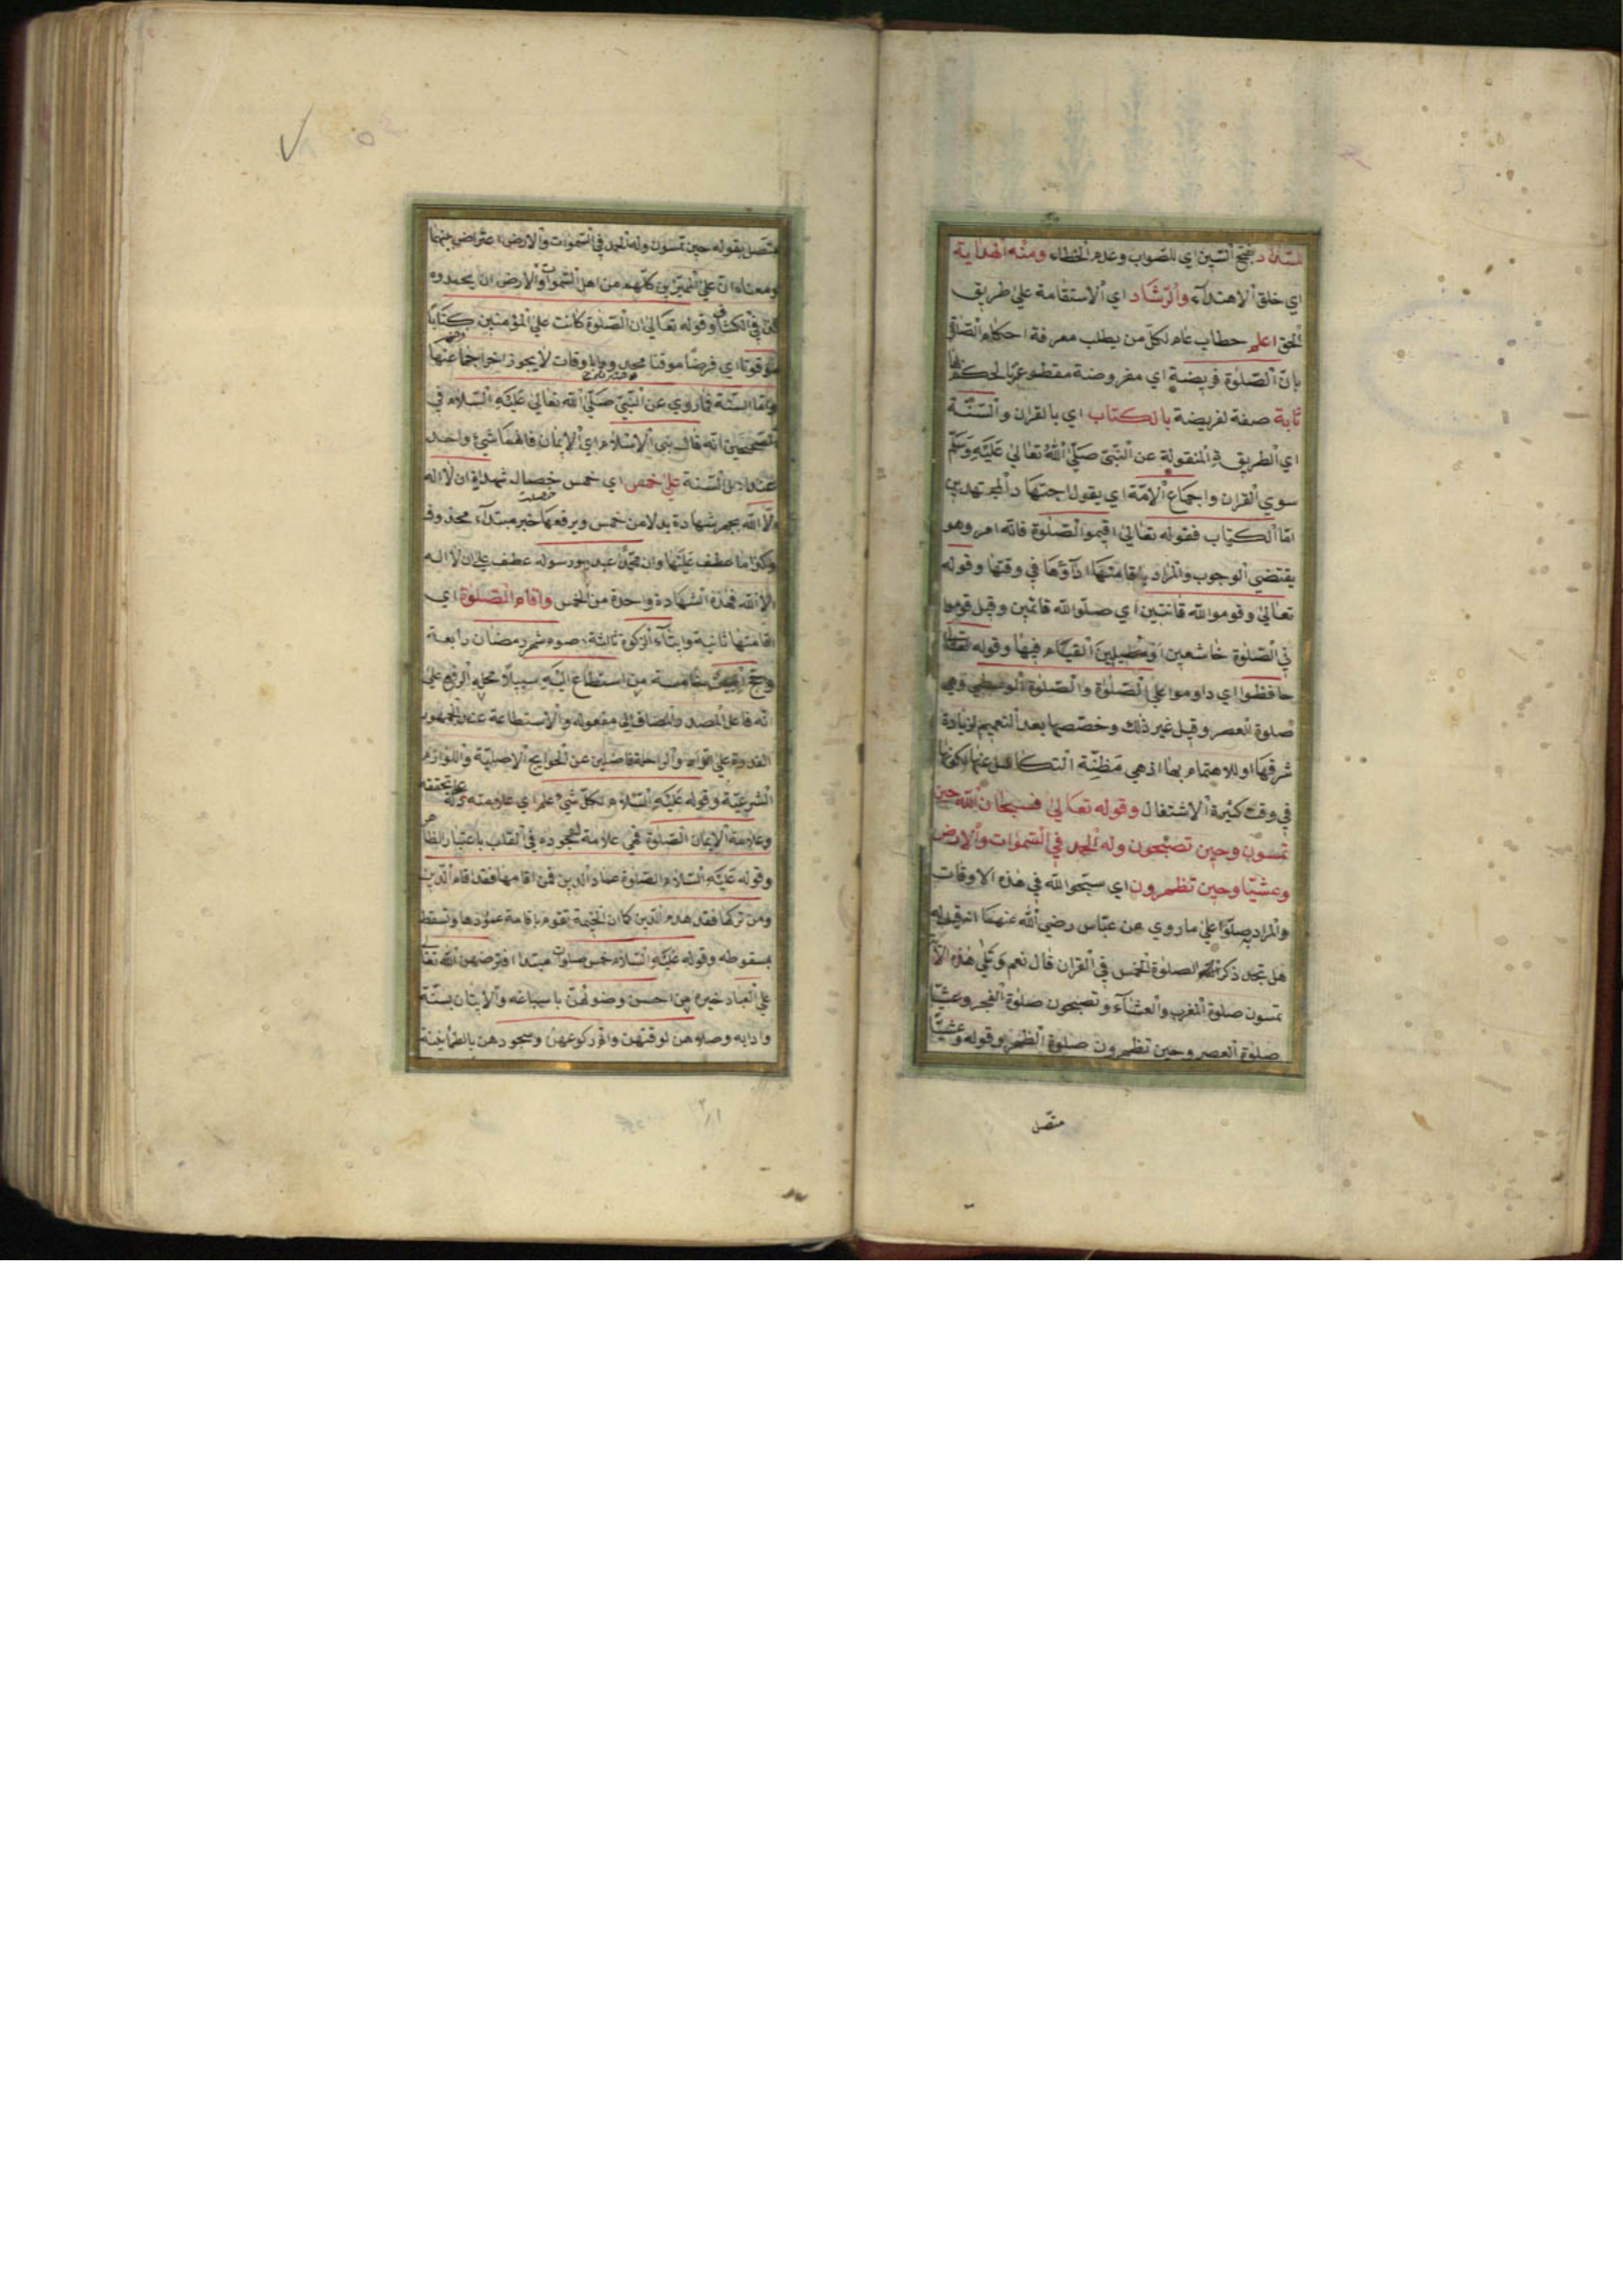 السداد بفتح السين اي للصواب وعدم الخطاء ومنه الهداية
اي خلق الاهتدآء والرشاد اي الاستقامة على طريق
الحق اعلم خطاب عام لكل من يطلب معرفة احكام الصلوة
بان الصلوة فريضة اي مفروضة مقطوع
ثابة صفة لفريضة بالكتاب اي بالقران والسنة
اي الطريق المنقولة عن النبي صلى الله تعالى عليه وسلم
سوى القران واجماع الامة اي بقول اجتهاد المجتهدين
اما الكتاب فقوله تعالى اقيموا الصلوة فانه امر وهو
يقتضي الوجوب والمراد باقامتها ادآؤها في وقتها وقوله
تعالى وقوموا لله قانتين اي صلوا لله قائمين وقيل قوموا
في الصلوة خاشعين او مطيلين القيام فيها وقوله تعالى
حافظوا اي داوموا على الصلوة والصلوة الوسطى وهي
صلوة العصر وقيل غير ذلك وخصصها بعد التعميم لزيادة
شرفها او للاهتمام بها اذ هي مظنة التكاسل عنها لكونها
في وقت كثيرة الاشتغال وقوله تعالى فسبحان الله حين
تمسون وحين تصبحون وله الحمد في السموات والارض
وعشيا وحين تظهرون اي سبحوا لله في هذه الاوقات
والمراد صلوا على ما روي عن عباس رضي الله عنهما انه قيل له
هل تجد ذكر الصلوة الخمس في القران قال نعم وتلى هذه الآ
تمسون صلوة المغرب والعشآء وتصبحون صلوة الفجر وعشيا
صلوة العصر وحين تظهرون صلوة الظهر وقوله وعشيا
متصل
متصل بقوله حين تمسون وله الحمد في السموات والارض اعتراض بينهما
ومعناه ان على المميزين كلهم من اهل السموات والارض ان يحمدوه
في الكشاف وقوله تعالى ان الصلوة كانت على المؤمنين كتابا
موقوتا اي فرضا موقتا محدودا باوقات لا يجوز اخراجها عنها
واما السنة فما روي عن النبي صلى الله تعالى عليه السلام في
الصحيحين انه قال بني الاسلام اي الايمان فانهما شيء واحد
عند اهل السنة على خمس اي خمس خصال شهادة ان لا اله
الا الله بجر شهادة بدلا من خمس وبرفعها خبر مبتدآء محذوف
وكذا ما عطف عليها وان محمدا عبده ورسوله عطف على ان لا اله
الا الله فهذه الشهادة واحدة من الخمس واقام الصلوة اي
اقامتها ثانية وايتآء الزكوة ثالثة وصوم شهر رمضان رابعة
وحج البيت خامسة من استطاع اليه سبيلا محله الرفع على
انه فاعل المصدر المضاف الى مفعوله والاستطاعة عند الجمهور
القدرة على الزاد والراحلة فاضلين عن الحوايج الاصلية واللوازم
الشرعية وقوله عليه السلام لكل شيء علم اي علامة دالة على تحققه
وعلامة الايمان الصلوة فهي علامة لوجوده في القلب باعتبار الظاهر
وقوله عليه السلام الصلوة عماد الدين فمن اقامها فقد اقام الدين
ومن تركها فقد هدم الدين كما ان الخيمة تقوم باقامة عمودها وتسقط
بسقوطه وقوله عليه السلام خمس صلوات مبتدا افترضهن الله تعالى
على العباد خبره من احسن وضوئهن باسباغه والاتيان بسننه
وادابه وصلاهن لوقتهن واتم ركوعهن وسجودهن بالطمأنينة